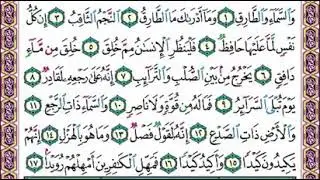 وَالسَّمَاءِ وَالطَّارِقِ ١ وَمَا أَدْرَىٰكَ مَا الطَّارِقُ ٢ النَّجْمُ الثَّاقِبُ ٣ إِن كُلُّ
نَفْسٍ لَّمَّا عَلَيْهَا حَافِظٌ ٤ فَلْيَنظُرِ الْإِنسَٰنُ مِمَّ خُلِقَ ٥ خُلِقَ مِن مَّاءٍ
دَافِقٍ ٦ يَخْرُجُ مِن بَيْنِ الصُّلْبِ وَالتَّرَائِبِ ٧ إِنَّهُ عَلَىٰ رَجْعِهِ لَقَادِرٌ ٨
يَوْمَ تُبْلَى السَّرَائِرُ ٩ فَمَا لَهُ مِن قُوَّةٍ وَلَا نَاصِرٍ ١٠ وَالسَّمَاءِ ذَاتِ الرَّجْعِ ١١
وَالْأَرْضِ ذَاتِ الصَّدْعِ ١٢ إِنَّهُ لَقَوْلٌ فَصْلٌ ١٣ وَمَا هُوَ بِالْهَزْلِ ١٤ إِنَّهُمْ
يَكِيدُونَ كَيْدًا ١٥ وَأَكِيدُ كَيْدًا ١٦ فَمَهِّلِ الْكَٰفِرِينَ أَمْهِلْهُمْ رُوَيْدًا ١٧